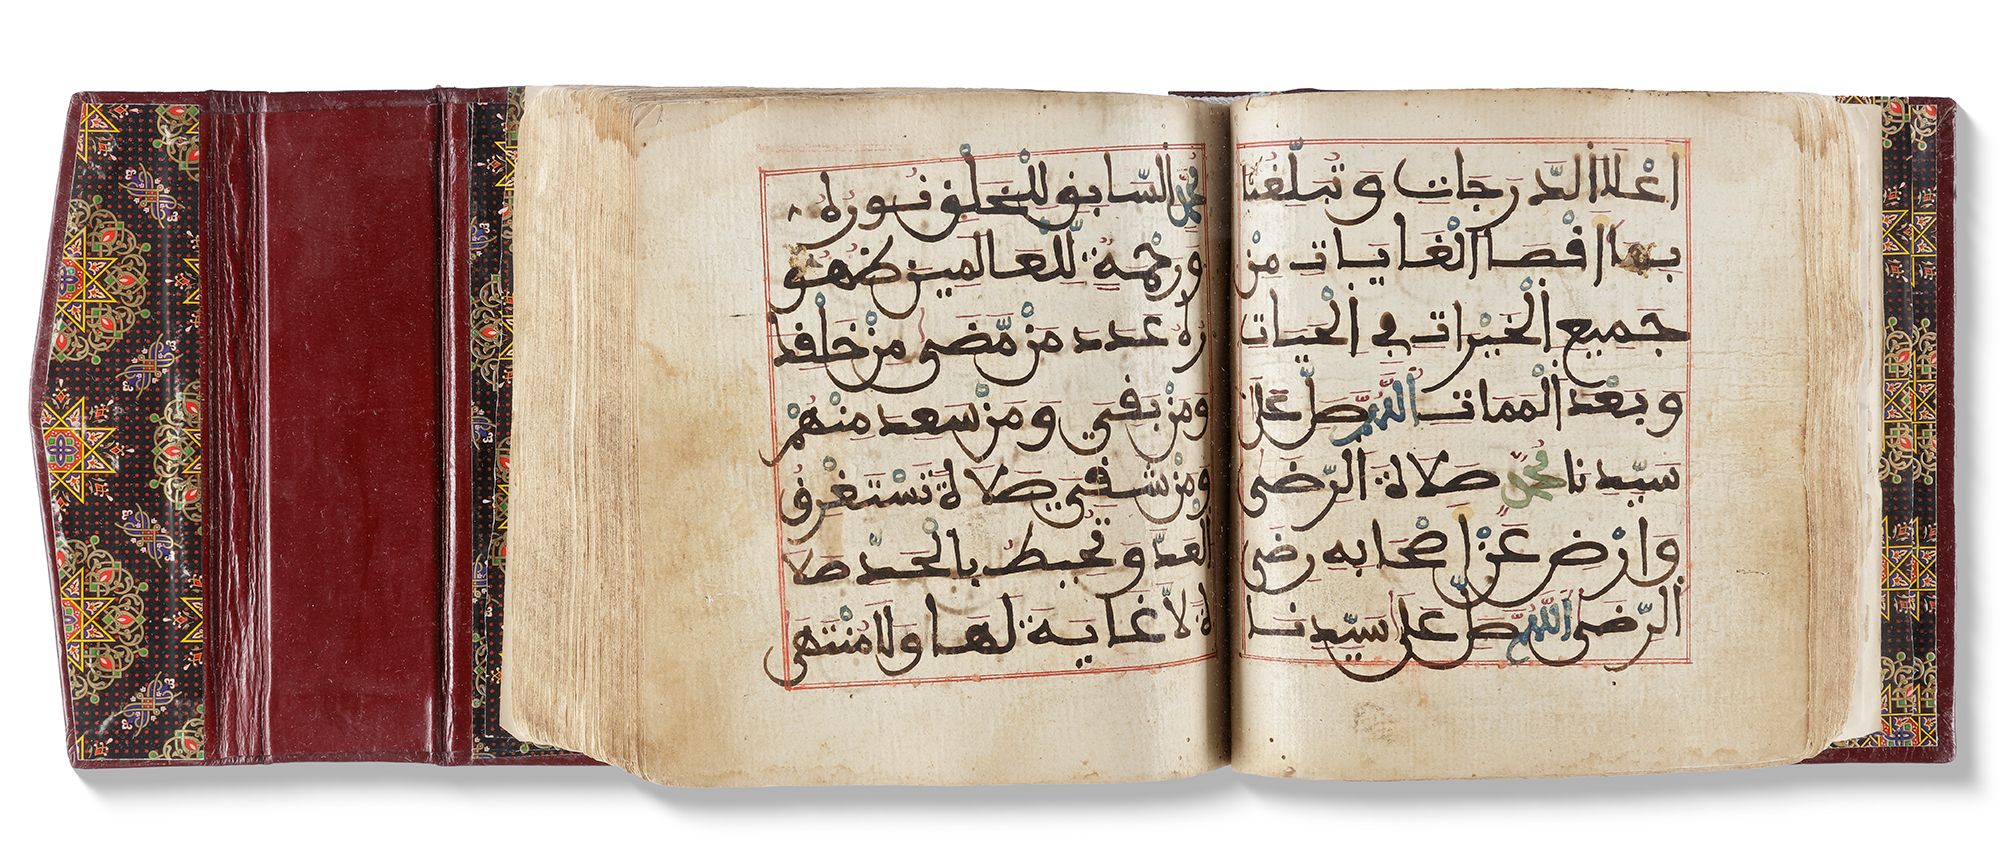 اعْلَا الدَّرجات وتبلّغنا
بها اقصا الْغايات مِنْ
جميع الْخيْرات في الْحيات
وبعْد الْممات اللهم صَّل على
سيّدنا محمدٍ صلاة الرّضى
وارْض عنْ اصْحابه رضى
الرّضى اللهم صَّل على سيّدنا
محمد السّابق للْخلْق نوره
ورحْمة للْعالمين ظهو
ره عدد منْ مّضى منْ خلْقك
ومنْ بقي ومنْ سعد منْهمْ
ومنْ شقي صلاة تسْتغْرق
الْعدّ وتحيط بالْحدّ صلا
ة لّا غاية لها ولا منْتهى